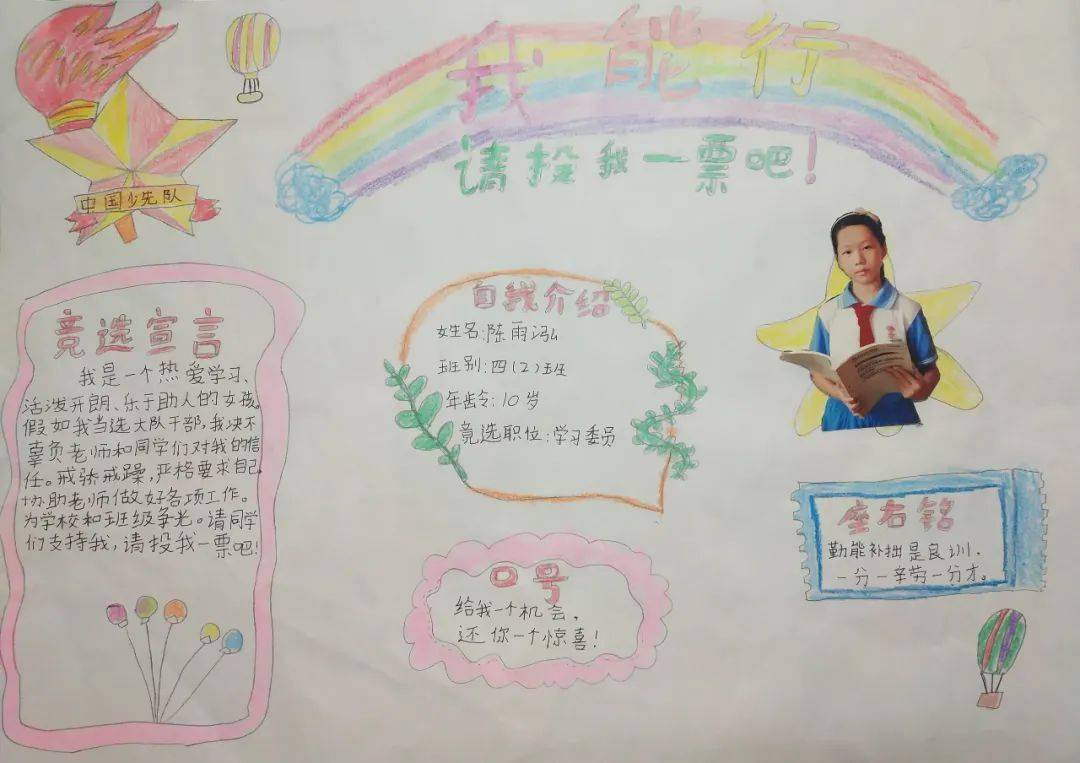 我能行
请投我一票吧！
中国少先队
竞选宣言
我是一个热爱学习、
活泼开朗、乐于助人的女孩。
假如我当选大队干部，我决不
辜负老师和同学们对我的信
任。戒骄戒躁，严格要求自己，
协助老师做好各项工作。
为学校和班级争光。请同学
们支持我，请投我一票吧！
自我介绍
姓名：陈雨泓
班别：四（2）班
年龄：10岁
竟选职位：学习委员
口号
给我一个机会，
还你一个惊喜！
座右铭
勤能补拙是良训，
一分一辛劳一分才。